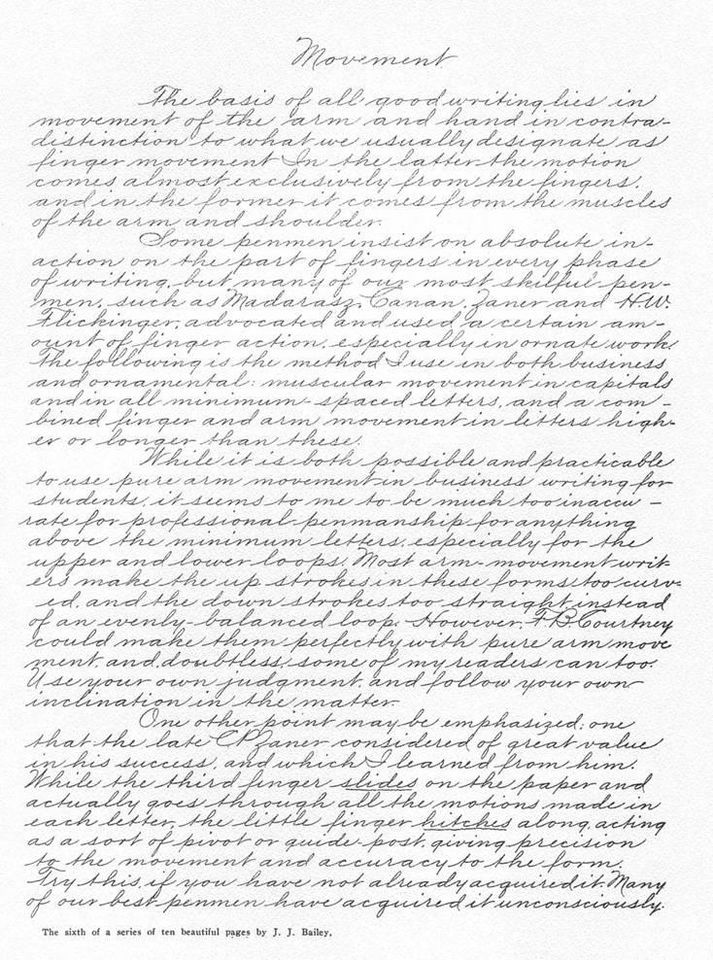 Movement
The basis of all good writing lies in
movement of the arm and hand in contra-
distinction to what we usually designate as
finger movement. In the latter the motion
comes almost exclusively from the fingers,
and in the former it comes from the muscles
of the arm and shoulder.
Some penmen insist on absolute in-
action on the part of fingers in every phase
of writing, but many of our most skilful pen-
men, such as Madarasz, Canan, Zaner and H.W.
Flickinger, advocated and used a certain am-
ount of finger action, especially in ornate work.
The following is the method I use in both business
and ornamental: muscular movement in capitals
and in all minimum-spaced letters, and a com-
bined finger and arm movement in letters high-
er or longer than these.
While it is both possible and practicable
to use pure arm movement in business writing for
students, it seems to me to be much too inaccu-
rate for professional penmanship for anything
above the minimum letters, especially for the
upper and lower loops. Most arm-movement writ-
ers make the up strokes in these forms too curv-
ed, and the down strokes too straight, instead
of an evenly-balanced loop. However, F.B. Courtney
could make them perfectly with pure arm move
ment, and, doubtless, some of my readers can too.
Use your own judgment, and follow your own
inclination in the matter.
One other point may be emphasized; one
that the late C.P. Zaner considered of great value
in his success, and which I learned from him:
While the third finger slides on the paper and
actually goes through all the motions made in
each letter, the little finger hitches along, acting
as a sort of pivot or guide-post, giving precision
to the movement and accuracy to the form.
Try this, if you have not already acquired it. Many
of our best penmen have acquired it unconsciously.
The sixth of a series of ten beautiful pages by J. J. Bailey.